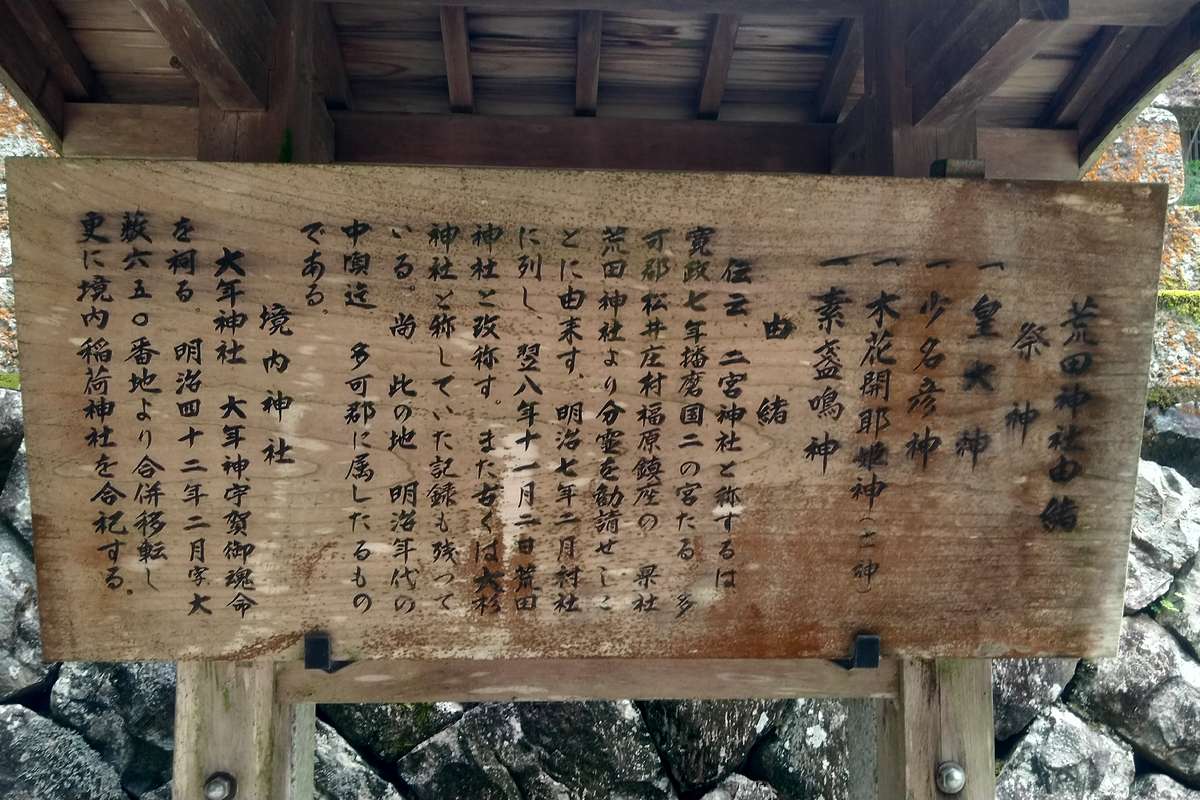 荒田神社由緒
祭神
一皇大神
一少名彦神
一木花開耶姫神(土神)
一素盞鳴神
由緒
伝云、二宮神社と称するは
寛政七年播磨国二の宮たる 多
可郡松井庄村福原鎮座の 県社
荒田神社より分霊を勧請せしこ
とに由来す、明治七年二月村社
に列し、翌八年十一月二日荒田
神社と改称す。また古くは大杉
神社と称していた記録も残って
いる。尚 此の地 明治年代の
中頃迄 多可郡に属したるもの
である。
境内神社
大年神社 大年神宇賀御魂命
を祠る。明治四十二年二月字大
薮六五〇番地より合併移転し
更に境内稲荷神社を合祀する。